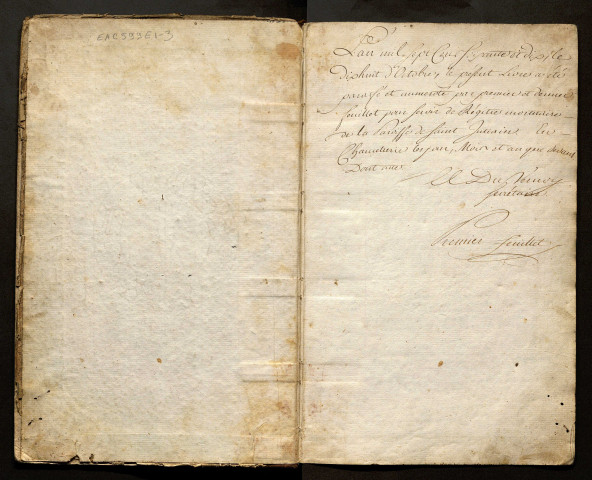 EAC599E1-3
L'an mil sept Cent Septante et dix le
dixhuit d'Octobre, le present Livre a été
paraffé et numeroté par premier et dernier
feuillet pour servir de Régistre mortuaire
de la Paroisse de Saint Julien les
les jour, Mois et an que devant
Dont acte
Secrétaire
Premier feuillet